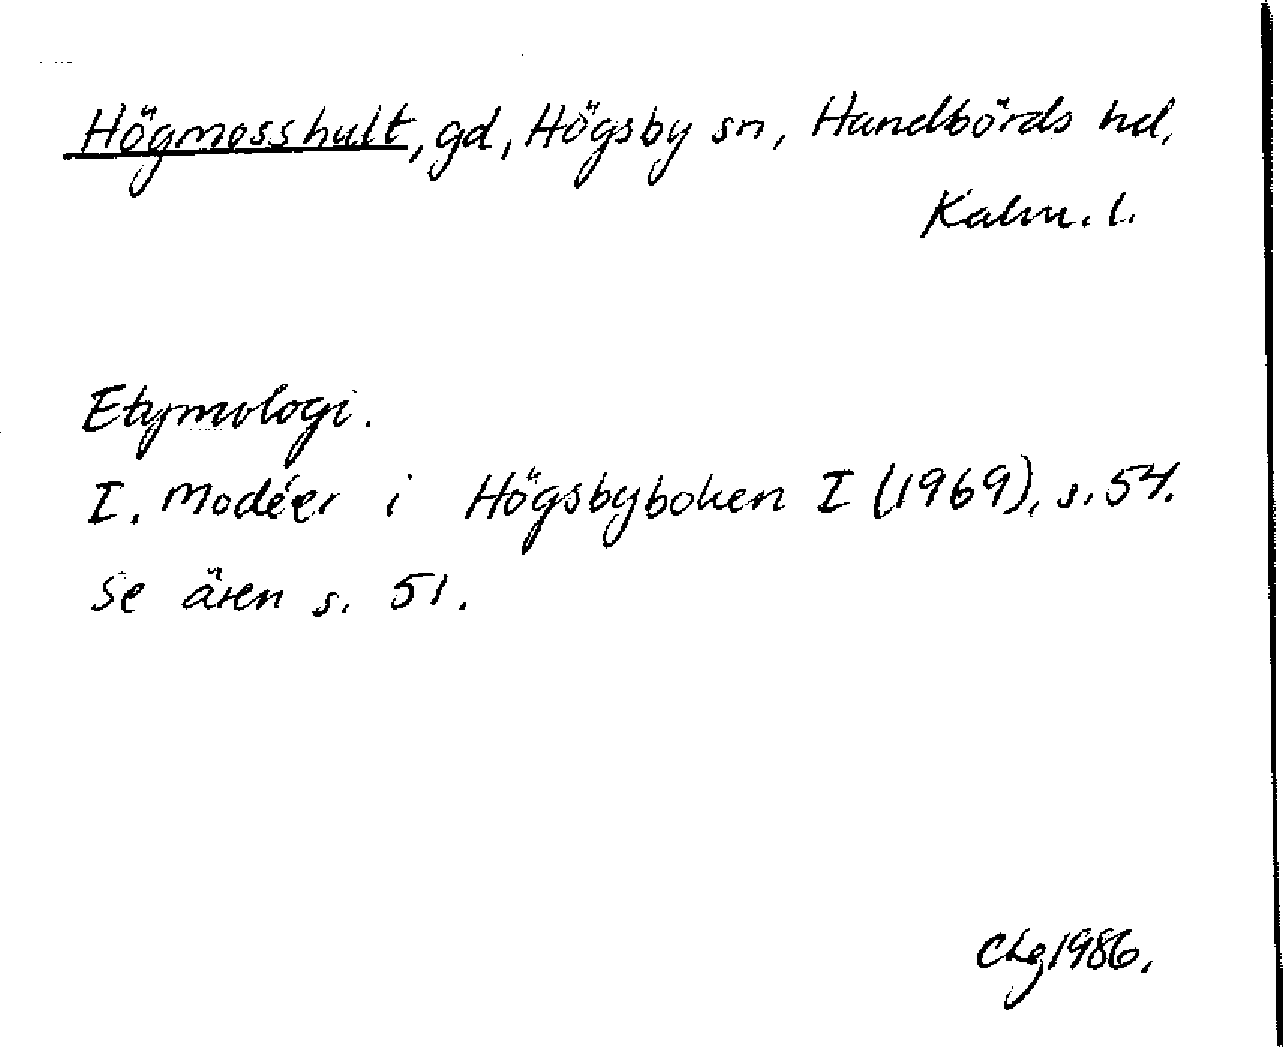 Högmosshult, gd, Högsby sn, Handbörds hd,
Kalm. l.
Etymologi.
I. Modéer i Högsbyboken I (1969), s. 54.
Se även s. 51.
CLg 1986.